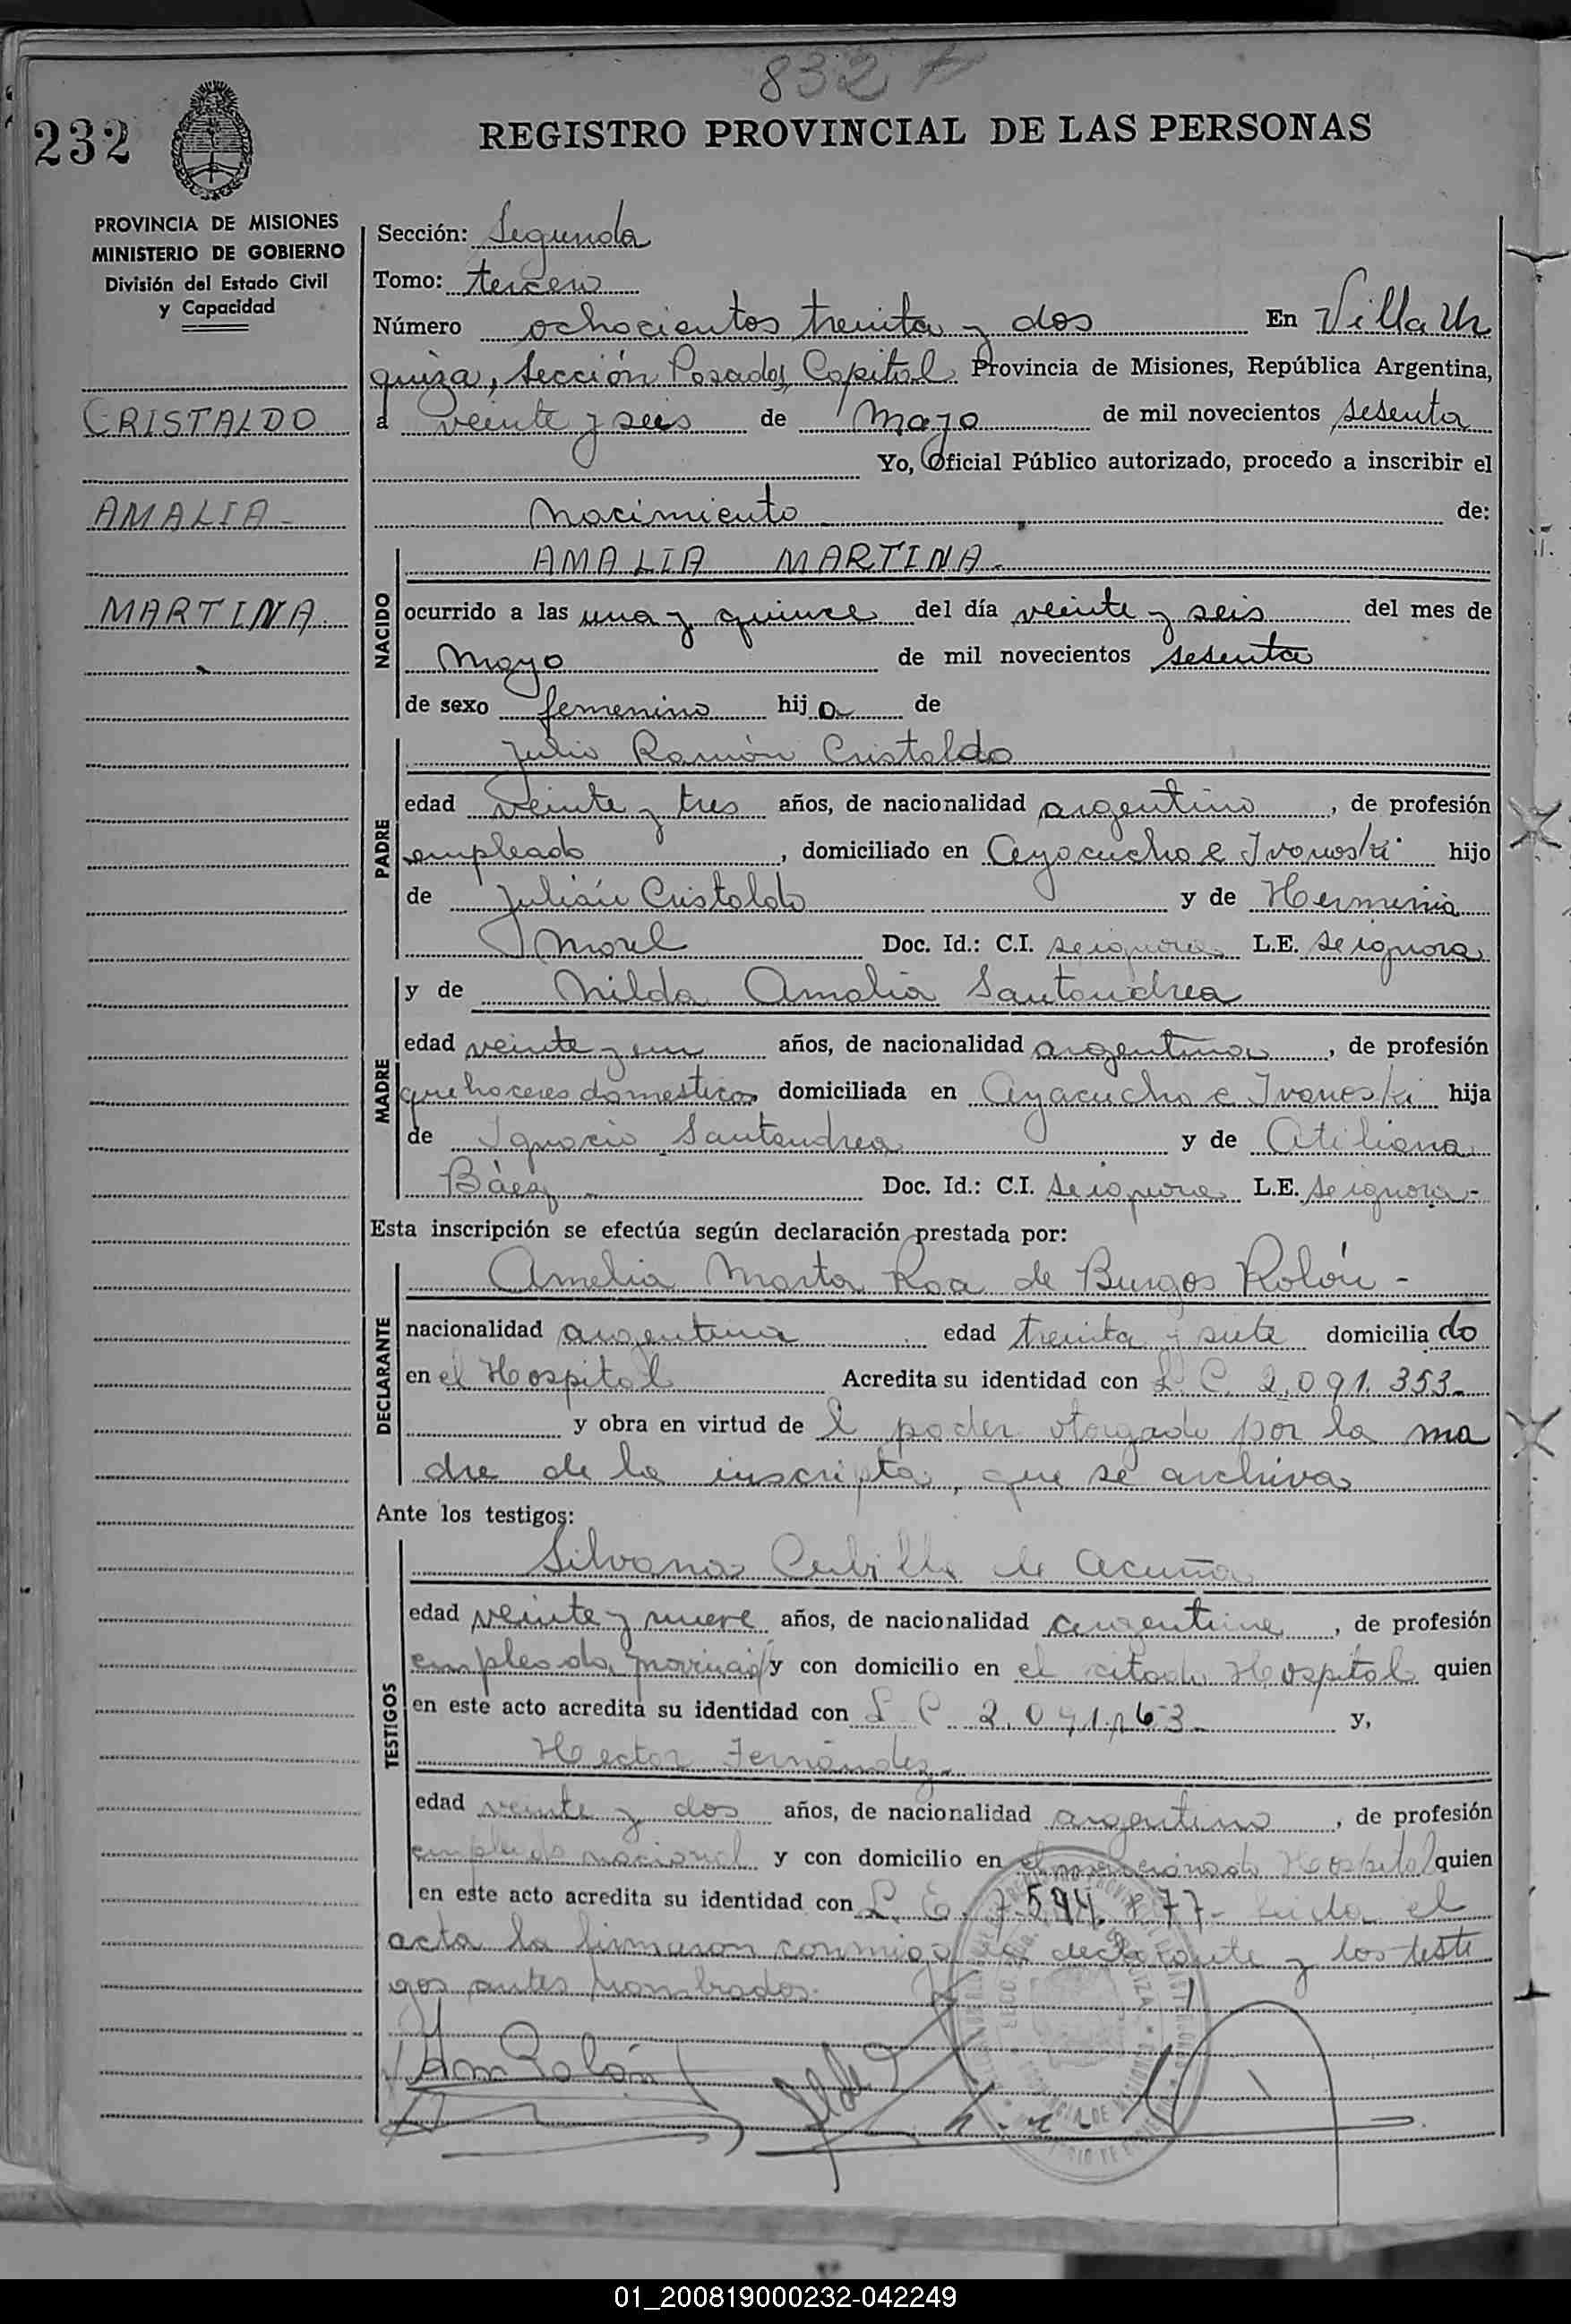 832
232
REGISTRO PROVINCIAL DE LAS PERSONAS
PROVINCIA DE MISIONES
MINISTERIO DE GOBIERNO
División del Estado Civil
y Capacidad
CRISTALDO
AMALIA -
MARTINA.
Sección: Segunda
Tomo: tercero
Número ochocientos treinta y dos En Villa Ur
quiza, Sección Posadas, Capital Provincia de Misiones, República Argentina,
a veinte y seis de Mayo de mil novecientos sesenta
Yo, Oficial Público autorizado, procedo a inscribir el
Nacimiento de:
NACIDO
AMALIA MARTINA.
ocurrido a las una y quince del día veinte y seis del mes de
Mayo de mil novecientos sesenta
de sexo femenino hija de
PADRE
Julio Ramón Cristaldo
edad veinte y tres años, de nacionalidad argentino, de profesión
empleado, domiciliado en Ayacucho e Ivanoski hijo
de Julián Cristaldo y de Herminia
Morel Doc. Id.: C.I. se ignora L.E. se ignora
MADRE
y de Nilda Amalia Santandrea
edad veinte y un años, de nacionalidad argentina, de profesión
quehaceres domesticos domiciliada en Ayacucho e Ivanoski hija
de Ignacio Santandrea y de Atiliana
Báez - Doc. Id.: C.I. se ignora L.E. se ignora -
Esta inscripción se efectúa según declaración prestada por:
DECLARANTE
Amelia Marta Roa de Burgos Rolón -
nacionalidad argentina edad treinta y siete domiciliado
en el Hospital Acredita su identidad con L. C. 2.091.353-
y obra en virtud de l poder otorgado por la ma
dre de la inscripta, que se archiva
Ante los testigos:
TESTIGOS
Silvana Cubilla de Acuña
edad veinte y nueve años, de nacionalidad argentina, de profesión
empleada provincial y con domicilio en el citado Hospital quien
en este acto acredita su identidad con L C y,
Hector Fernández-
edad veinte y dos años, de nacionalidad argentino, de profesión
empleado nacional y con domicilio en el mencionado Hospital quien
en este acto acredita su identidad con L. E. 7.594.877- Leida el
acta la firmaron conmigo la declarante y los testi
gos antes nombrados.
Rolón
01_200819000232-042249